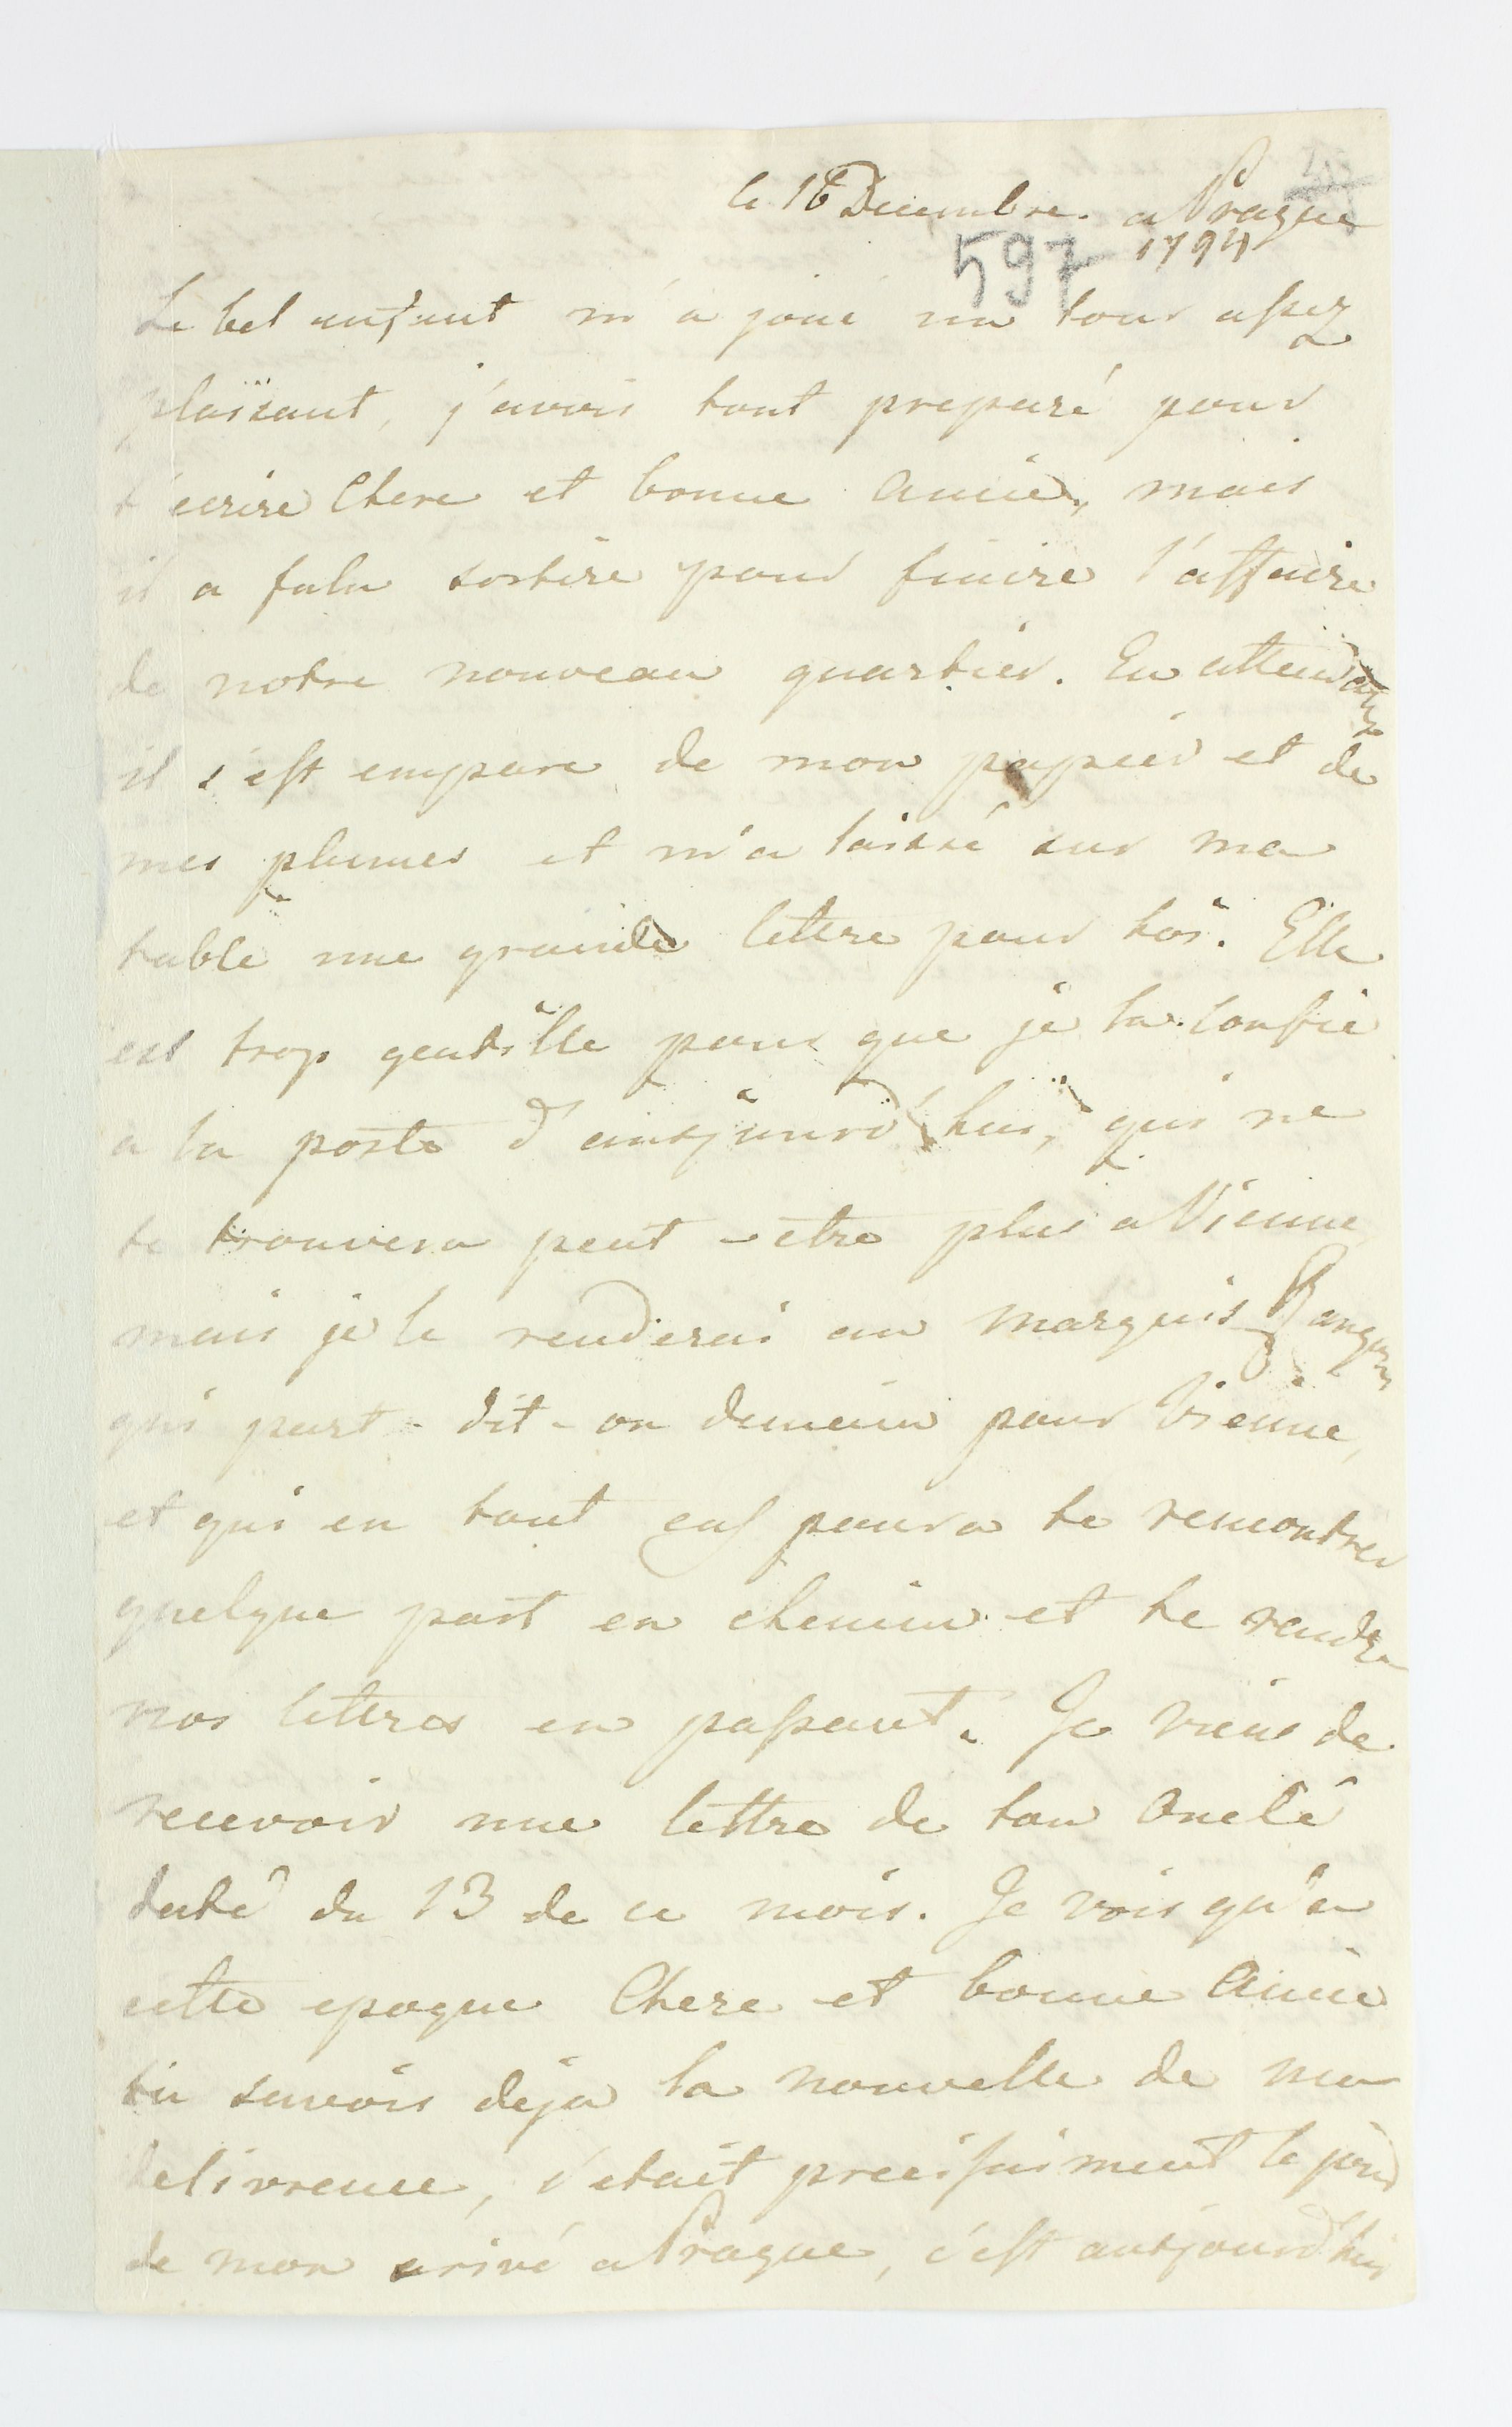 le 16 Decembre. a Prague
597 1794
Le bel enfant m'a joué un tour assez
plaisant, j'avois tout preparé pour
t'ecrire Chere et bonne Amie, mais
il a falu sortire pour finire l'affaire
de notre nouveau quartier. En attendant
il s'est empare de mon papier et de
mes plumes et m'a laissé sur ma
table une grande lettre pour toi. Elle
est trop gentille pour que je la confie
a la poste d'aujourd'hui, qui ne
te trouvera peut-etre plus a Vienne
mais je le renderai au marquis
qui part-dit-on demain pour Vienne,
et qui en tout cas poura te remontrer
quelque part en chemin et te rendre
nos lettres en passant. Je viens de
recevoir une lettre de ton Oncle
daté du 13 de ce mois. Je vois qu'a
cette epoque Chere et bonne Amie
tu savois deja la nouvelle de ma
delivrence, c'etait precisaiment le jour
de mon arivé a Prague, c'est aujourd'hui